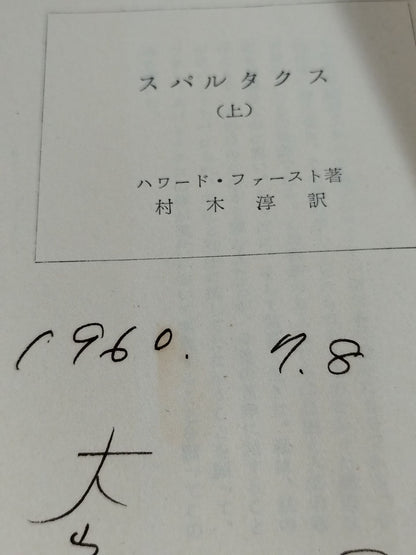 スパルタクス
(上)
ハワード・ファースト著
村木淳訳
1960. 7.8
大